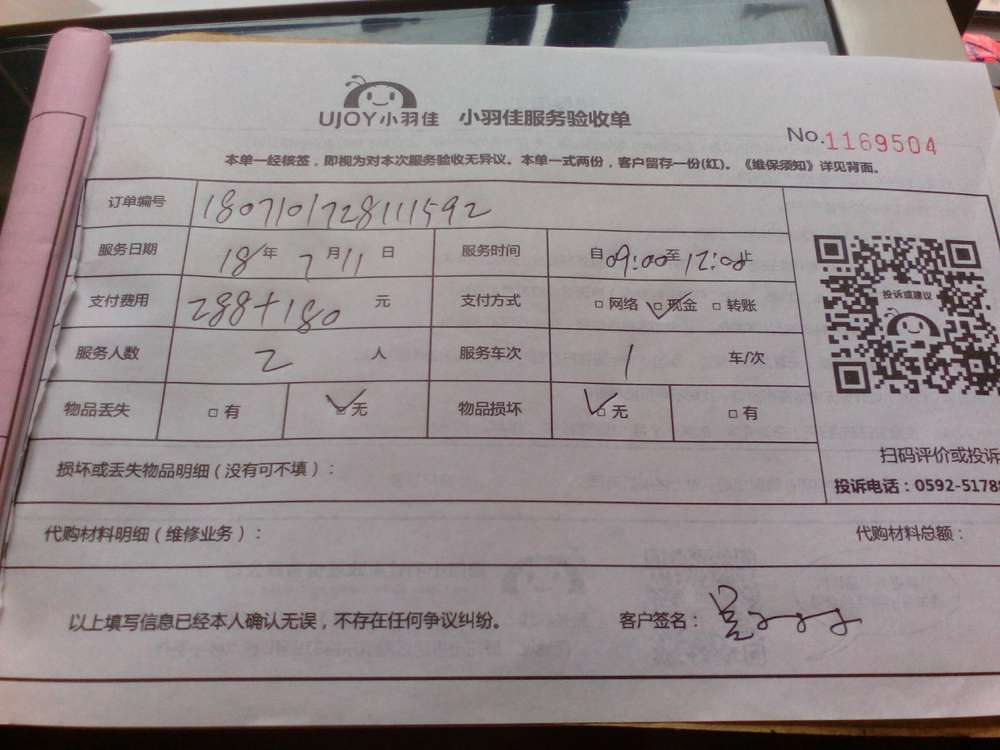 UJOY小羽佳 小羽佳服务验收单
No.1169504
本单一经核签，即视为对本次服务验收无异议。本单一式两份，客户留存一份(红)。《维保须知》详见背面。
订单编号 180710172811592
服务日期 18年 7月11日 服务时间 自09:00至12:00止
支付费用 288+180 元 支付方式 □网络 ☑现金 □转账
服务人数 2 人 服务车次 1 车/次
物品丢失 □有 ☑无 物品损坏 ☑无 □有
投诉或建议
扫码评价或投诉
损坏或丢失物品明细（没有可不填）：
投诉电话：0592-5178
代购材料明细（维修业务）： 代购材料总额：
以上填写信息已经本人确认无误，不存在任何争议纠纷。 客户签名：